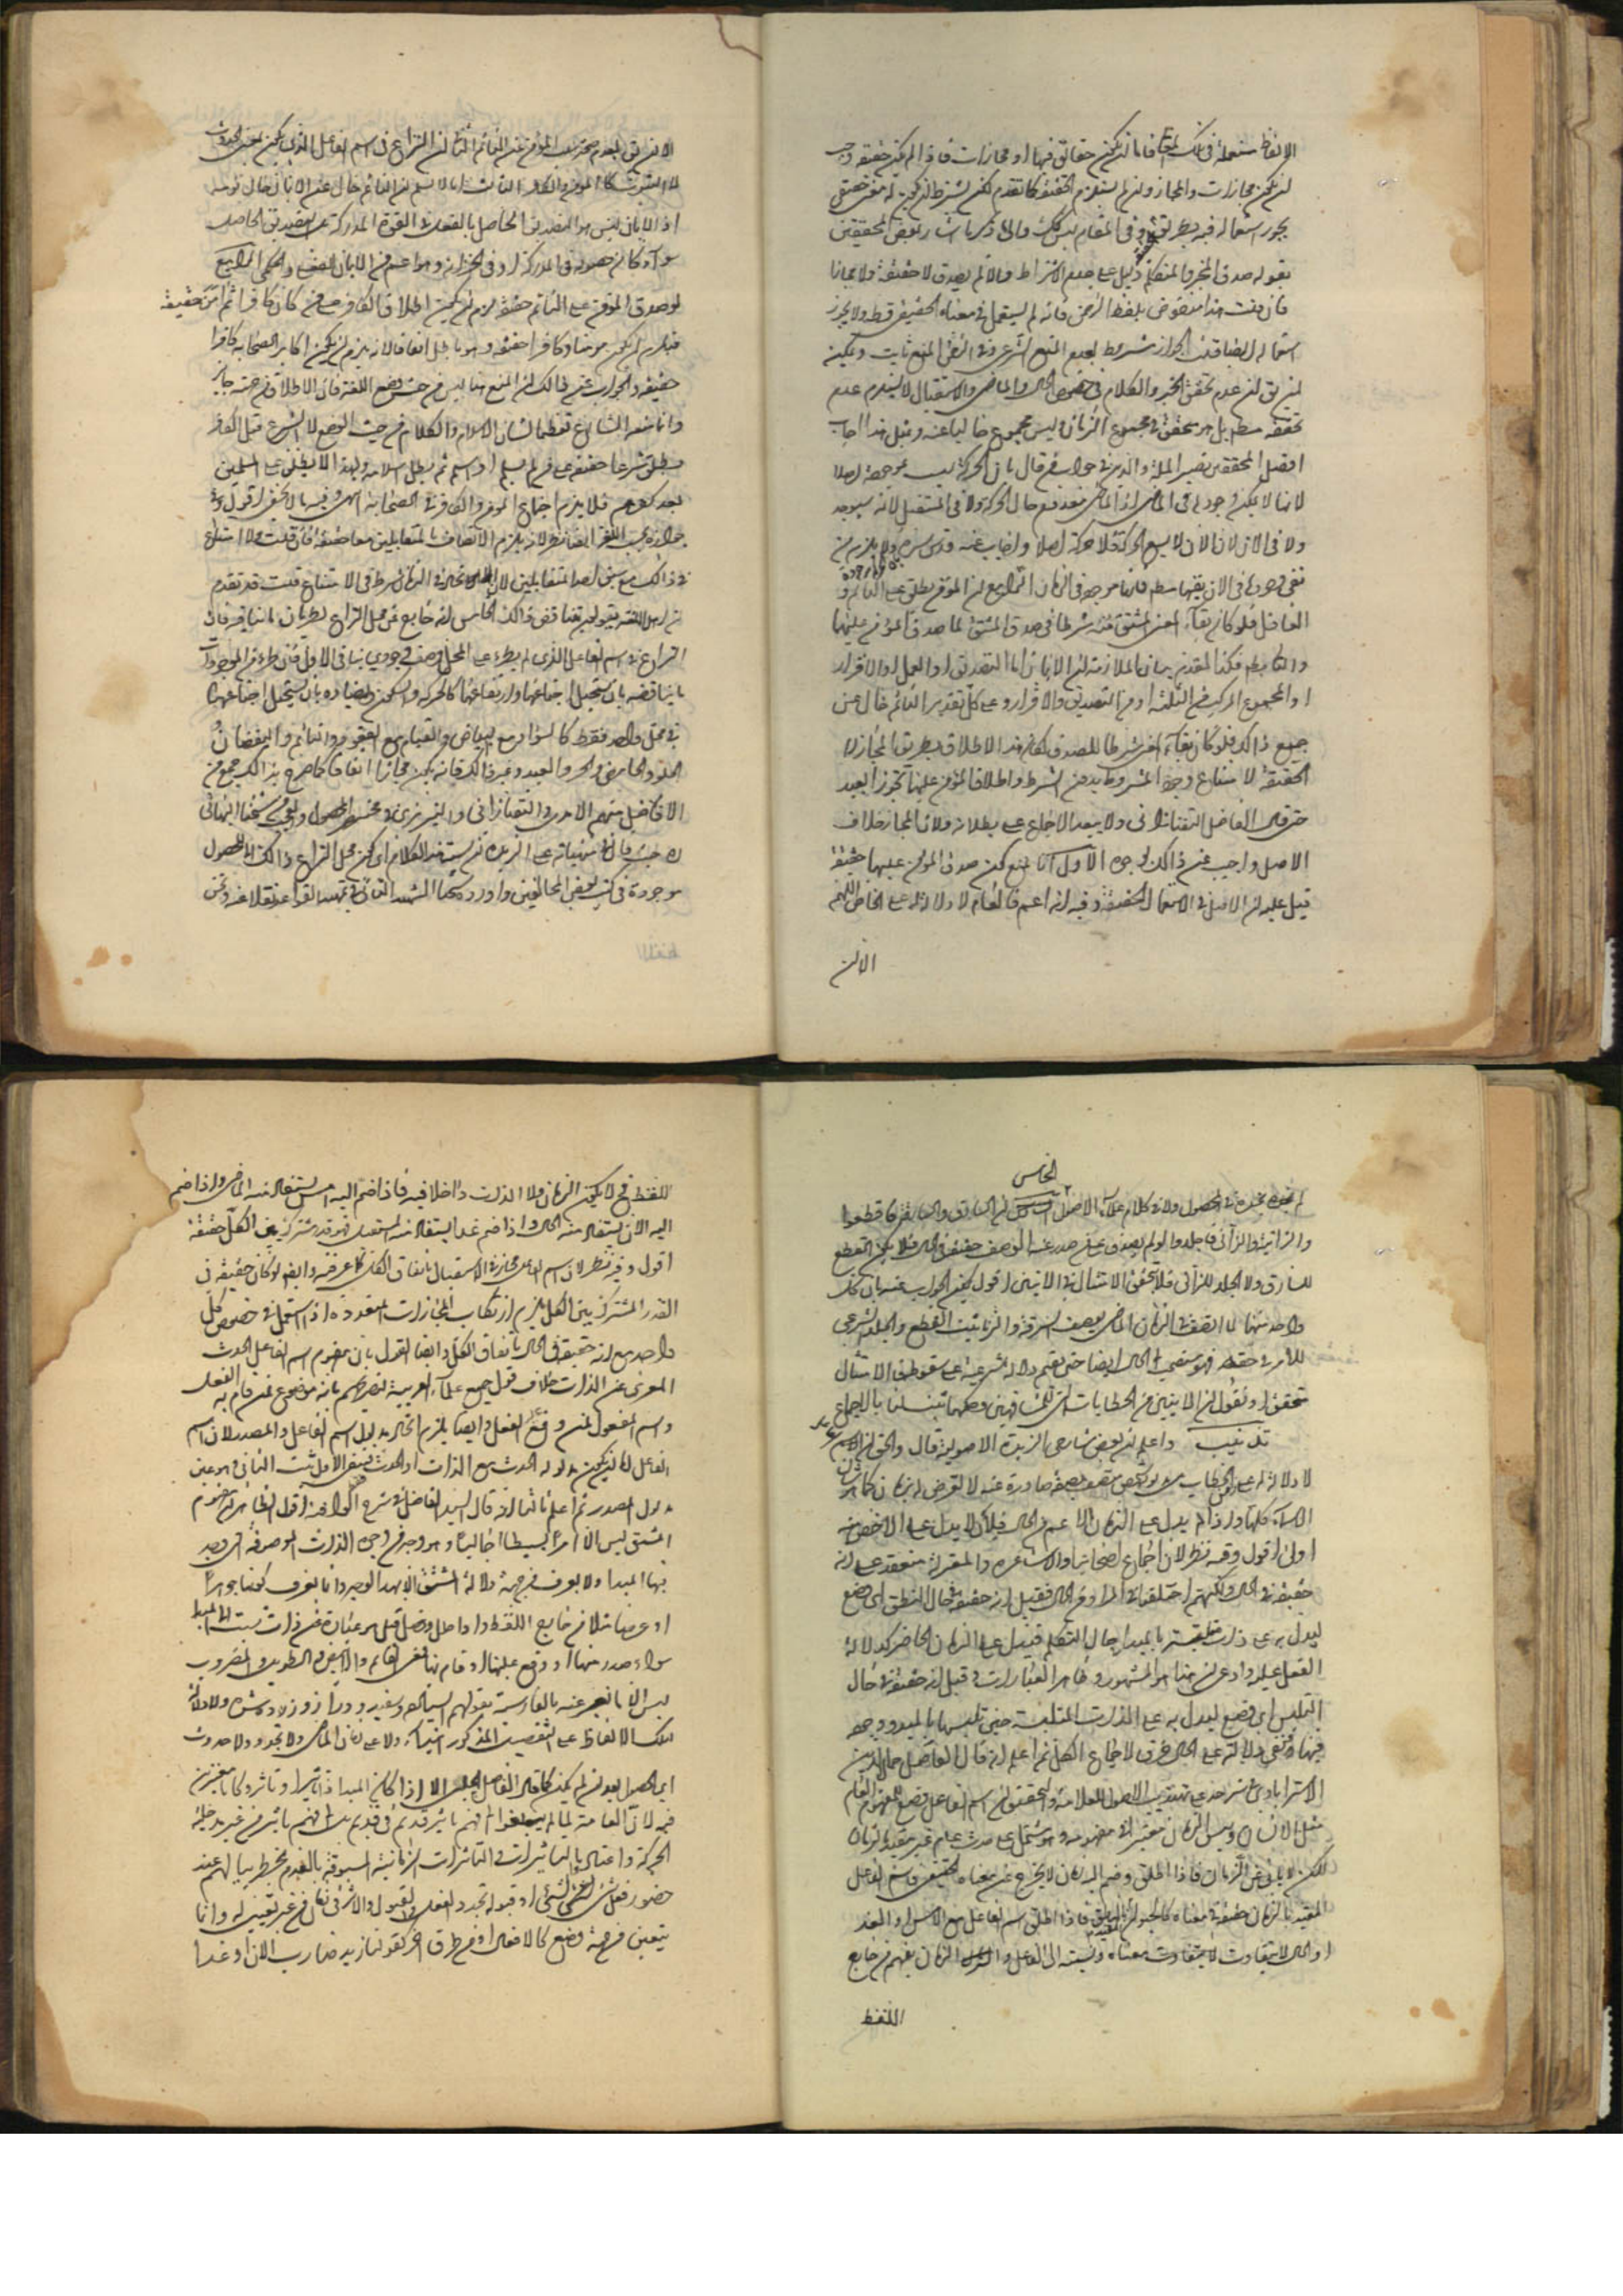 الالفاظ مستعملة في تلك فاما ان يكون حقائق فيها او مجازات فاذا لم يكن حقيقة وجب
ان يكون مجازات والمجاز وان لم يستلزم الحقيقة كما تقدم لكن يشترط ان يكون له معنى حقيقي
يجوز استعماله فيه بطريق وفي المقام ليس كذلك والى ما ذكرنا اشار بعض المحققين
بقوله صدق المخبر والمتكلم دليل على عدم الاشتراط والا لم يصدق لا حقيقة ولا مجازا
فان قلت هذا منقوض بلفظ الرحمن فانه لم يستعمل في معناه الحقيقي قط ولا يجوز
استعماله ايضا قلت الجواز مشروط بعدم المنع الشرعي وفي الرحمن المنع ثابت ويمكن
ان يق ان عدم تحقق الخبر والكلام في خصوص الحال والماضي والاستقبال لا يستلزم عدم
تحققه مطم بل هو متحقق في مجموع الزمان وليس مجموع خاليا عنه وبمثل هذا اجاب
افضل المحققين نصير الملة والدين في جواب من قال بان الحركة ليست بموجودة اصلا
لانها لا يمكن وجودها في الماضي اذ الماضي منعدم حال الحركة ولا في المستقبل لانه سيوجد
ولا في الان لان الان لا يسع الحركة فلا حركة اصلا واجاب عنه قدس سره ولا يلزم من
نفي وجودها في الان نفيها مطم فانها موجودة في الزمان الرابع ان المؤمن يطلق على النائم و
الغافل فلو كان بقاء المعنى المشتق منه شرطا في صدق المشتق لما صدق المؤمن عليهما
والتالي بط فكذا المقدم بيان الملازمة ان الايمان اما التصديق او العمل او الاقرار
او المجموع المركب من الثلثة او من التصديق والاقرار وعلى كل تقدير النائم خال عن
جميع ذلك فلو كان بقاء المعنى شرطا للصدق لكان هذا الاطلاق بطريق المجاز لا
الحقيقة لامتناع وجود المشروط بدون الشرط واطلاق المؤمن عليهما تجوزا بعيد
حتى قال الفاضل التفتازاني ولا يبعد الاجماع على بطلانه ولان المجاز خلاف
الاصل واجيب عن ذلك بوجوه الاول انا نمنع كون صدق المؤمن عليهما حقيقة
قيل عليه ان الاصل في الاستعمال الحقيقة وفيه انه اعم فالعام لا دلالة له على الخاص اللهم
الا ان
الا ان يق بعدم صحة سلب المؤمن عن النائم الثاني ان النزاع في اسم الفاعل الذي يكون بمعنى الحدوث
لا الثبوت كالمؤمن والكافر الثالث انا لا نسلم ان النائم خال عن الايمان حال نومه
اذ الايمان ليس هو التصديق الحاصل بالفعل في القوة المدركة بل التصديق الحاصل
سواء كان حصوله في المدركة او في الخزانة وهو اعم من الايمان الفعلي والحكمي الرابع
لو صدق المؤمن على النائم حقيقة لزم ان يكون اطلاق الكافر على من كان كافرا ثم آمن حقيقة
فيلزم ان يكون مؤمنا وكافرا حقيقة وهو باطل اتفاقا لانه يلزم ان يكون اكابر الصحابة كافرا
حقيقة والجواب عنه ان المنع هنا ليس من حيث وضع اللغة فان الاطلاق من جهته جايز
وانما منعه الشارع تعظيما لشان الاسلام والكلام من حيث الوضع لا الشرع قيل الكافر
يطلق شرعا حقيقة على من لم يسلم او اسلم ثم بطل اسلامه ولهذا لا يطلق على المسلمين
بعد كفرهم فلا يلزم اجتماع المؤمن والكافر في الصحابة انتهى وفيه ما لا يخفى اقول وفي
جوازه بحسب اللغة ايضا نظر لانه يلزم الاتصاف بالمتقابلين معا حقيقة فان قلت ولا امتناع
في ذلك مع سبق احد المتقابلين لان اتحاد الزمان شرط في الامتناع قلت قد تقدم
ان اهل اللغة يقولون بتناقض ذلك الخامس انه خارج عن محل النزاع لطريان ما ينافيه فان
النزاع في اسم الفاعل الذي لم يطرء على المحل وصف وجودي ينافي الاول فان طرء من الموجودات
ما يناقضه بان يستحيل اجتماعها وارتفاعها كالحركة والسكون او يضاده بان يستحيل اجتماعهما
في محل واحد فقط كالسواد مع البياض والقيام مع القعود والنائم واليقظان
الحلو والحامض والحر والعبد وغير ذلك فانه يكون مجازا اتفاقا كما صرح بذلك جمع من
الافاضل منهم الامدي والتفتازاني والتبريزي في مختصر المحصول والعجب من شيخنا البهائي
ره حيث قال في منهياته على الزبدة لم يسبقه هذا الكلام اي كون محل النزاع ذلك والحصول
موجودة في كتب بعض المخالفين واورده شيخنا الشهيد الثاني في تمهيد القواعد نقلا عنه ونحن
الخامس
لم نجده بنحوه في المحصول ولا في كلام علماء الاصول ان السارق والسارقة فاقطعوا
والزانية والزاني فاجلدوا لو لم يصدق على من صدر عنه الوصف حقيقة في الحال فلا يكون القطع
للسارق ولا الجلد للزاني فلا يتحقق الامتثال في الايتين اقول يمكن الجواب عنه بان كل
واحد منهما لما اتصف في الزمان الماضي بوصف السرقة والزنا ثبت القطع والجلد الشرعي
للامر في حقه فهو مستصحب الحال ايضا حتى يقوم دلالة شرعية على سقوطه فالامتثال
متحقق او نقول ان الايتين من الخطابات التي للمشافهين وحكمها يثبت لنا بالاجماع
تذنيب واعلم ان بعض شارحي الزبدة الاصولية قال والحق ان الاسم
لا دلالة له على الخطاب لزمان كما هو شان
الاسماء كلها واذا لم يدل على الزمان الاعم من الحال فبان لا يدل على الاخص منه
اولى اقول وفيه نظر لان اجماع اصحابنا والاشاعرة والمعتزلة منعقد على انه
حقيقة في الحال ولكنهم اختلفوا في المراد من الحال فقيل انه حقيقة في حال النطق اي وضع
ليدل به على ذات متلبسة بالمبدا حال التكلم فيدل على الزمان الحاضر كدلالة
الفعل عليه وادعى ان هذا هو المشهور وظاهر العبارات وقيل انه حقيقة في حال
التلبس اي وضع ليدل به على الذات المتلبسة حين تلبسها بالمبدء ووجوده
فيها فنفى دلالته على الحال خرق لاجماع الكل ثم اعلم انه قال الفاضل جمال الدين
الاسترابادي في شرحه على تهذيب الاصول للعلامة والتحقيق ان اسم الفاعل وضع للمفهوم العام
مثل الانسان وليس الزمان معتبرا في مفهومه وهو مشتمل على حدث عام غير مقيد بالزمان
لكن لا يأبى عن الزمان فاذا اطلق وضم اليه زمان لا يخرج عن معناه الحقيقي فاسم الفاعل
المقيد بالزمان حقيقة في معناه كالحيوان الناطق فاذا اطلق اسم الفاعل مع الامس او الغد
او الحال لا يتفاوت معناه ونسبته الى الفاعل والزمان يفهم من خارج
اللفظ
اللفظ فح لا يكون الزمان ولا الذات داخلا فيه فاذا ضم اليه امس يستفاد منه الماضي واذا ضم
اليه الان يستفاد منه الحال واذا ضم غدا يستفاد منه المستقبل فهو قدر مشترك بين الكل حقيقة
اقول وفيه نظر لان اسم الفاعل مجاز في الاستقبال باتفاق الكل كما عرفته وايض لو كان حقيقة في
القدر المشترك بين الكل يلزم ارتكاب المجازات المتعددة اذا استعمل في خصوص كل
واحد مع انه حقيقة في الحال باتفاق الكل وايضا القول بان مفهوم اسم الفاعل الحدث
المعرى عن الذات خلاف قول جميع علماء العربية لتصريحهم بانه موضوع لمن قام به الفعل
واسم المفعول لمن وقع عليه الفعل وايضا يلزم اتحاد مدلول اسم الفاعل والمصدر لان اسم
الفاعل اما ان يكون مدلوله الحدث مع الذات او الحدث فبنفي الاول ثبت الثاني وهو عين
مدلول المصدر ثم اعلم ثانيا انه قال السيد الفاضل في شرح المواقف اقول الظاهر ان مفهوم
المشتق ليس الا امرا بسيطا اجماليا وهو وجه من وجوه الذات الموصوفة التي وجد
فيها المبدا ولا يعرف من جهة دلالة المشتق الا بهذا الوجه وانما يعرف كونها جوهرا
او عرضا مثلا من خارج اللفظ واداحل وفصل قيل هو عبارة عن ذات ثبت لها المبدا
سواء صدر منها او وقع عليها او قام بها فمعنى القائم والابيض والطويل والمضروب
ليس الا ما نعبر عنه بالفارسية بقولهم ايستاده وسفيد ودراز وزده شده ولا دلالة
لتلك الالفاظ على التفصيل المذكور اثباتا ولا على زمان الماضي ولا تجدد ولا حدوث
اي حصول بعد ان لم يكن كما قال الفاضل الجلبي الا اذا كان المبدا تاثيرا وتاثرا وكانا معتبرين
فيه لان العامة لما لم يبلغوا الى فهم تاثير قديم في قديم بل فهم تاثير من غير مدخلية
الحركة واعتادوا بالتاثيرات والتاثرات الزمانية المسبوقة بالعدم يخطر ببالهم عند
حضور فعل شئ لشئ او قبوله تجدد الفعل والقبول والاثر في زمان من غير تعيين له وانما
يتعين من جهة وضع كالافعال او من طرق اخر كقولنا زيد ضارب الان او غدا